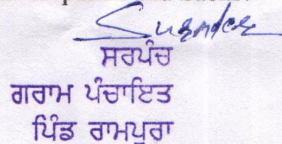 Surender
ਸਰਪੰਚ
ਗਰਾਮ ਪੰਚਾਇਤ
ਪਿੰਡ ਰਾਮਪੁਰਾ